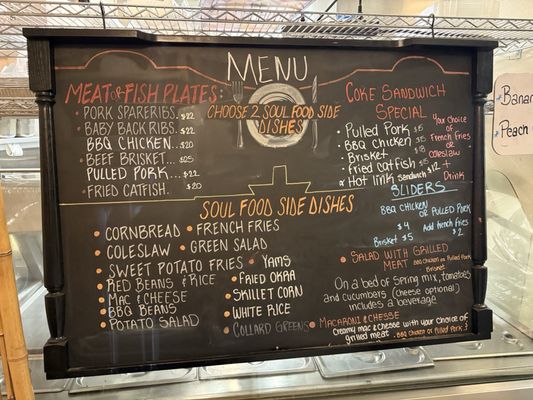 MENU
MEAT OR FISH PLATES:
PORK SPARERIBS. $22
BABY BACK RIBS. $22
BBQ CHICKEN. $20
BEEF BRISKET... $25
PULLED PORK... $22
FRIED CATFISH. $20
CHOOSE 2 SOUL FOOD SIDE
DISHES
COKE SANDWICH
SPECIAL
Pulled Pork $5
BBQ Chicken $5
Brisket $8
Fried Catfish $5
or Hot Link Sandwich $12 + Drink
Your Choice
of
French Fries
or
Coleslaw
SLIDERS
BBQ CHICKEN
OR PULLED PORK
$4
Add French Fries
Brisket $5
$2
SOUL FOOD SIDE DISHES
CORNBREAD
COLESLAW
SWEET POTATO FRIES
RED BEANS & RICE
MAC & CHEESE
BBQ BEANS
POTATO SALAD
FRENCH FRIES
GREEN SALAD
YAMS
FRIED OKRA
SKILLET CORN
WHITE RICE
COLLARD GREENS
SALAD WITH GRILLED
MEAT BBQ Chicken or Pulled Pork
Brisket
On a bed of Spring mix, tomatoes
and cucumbers (cheese optional)
includes a beverage
MACARONI & CHEESE
Creamy mac & cheese with your choice of
grilled meat. BBQ Chicken or Pulled Pork
Banan
Peach